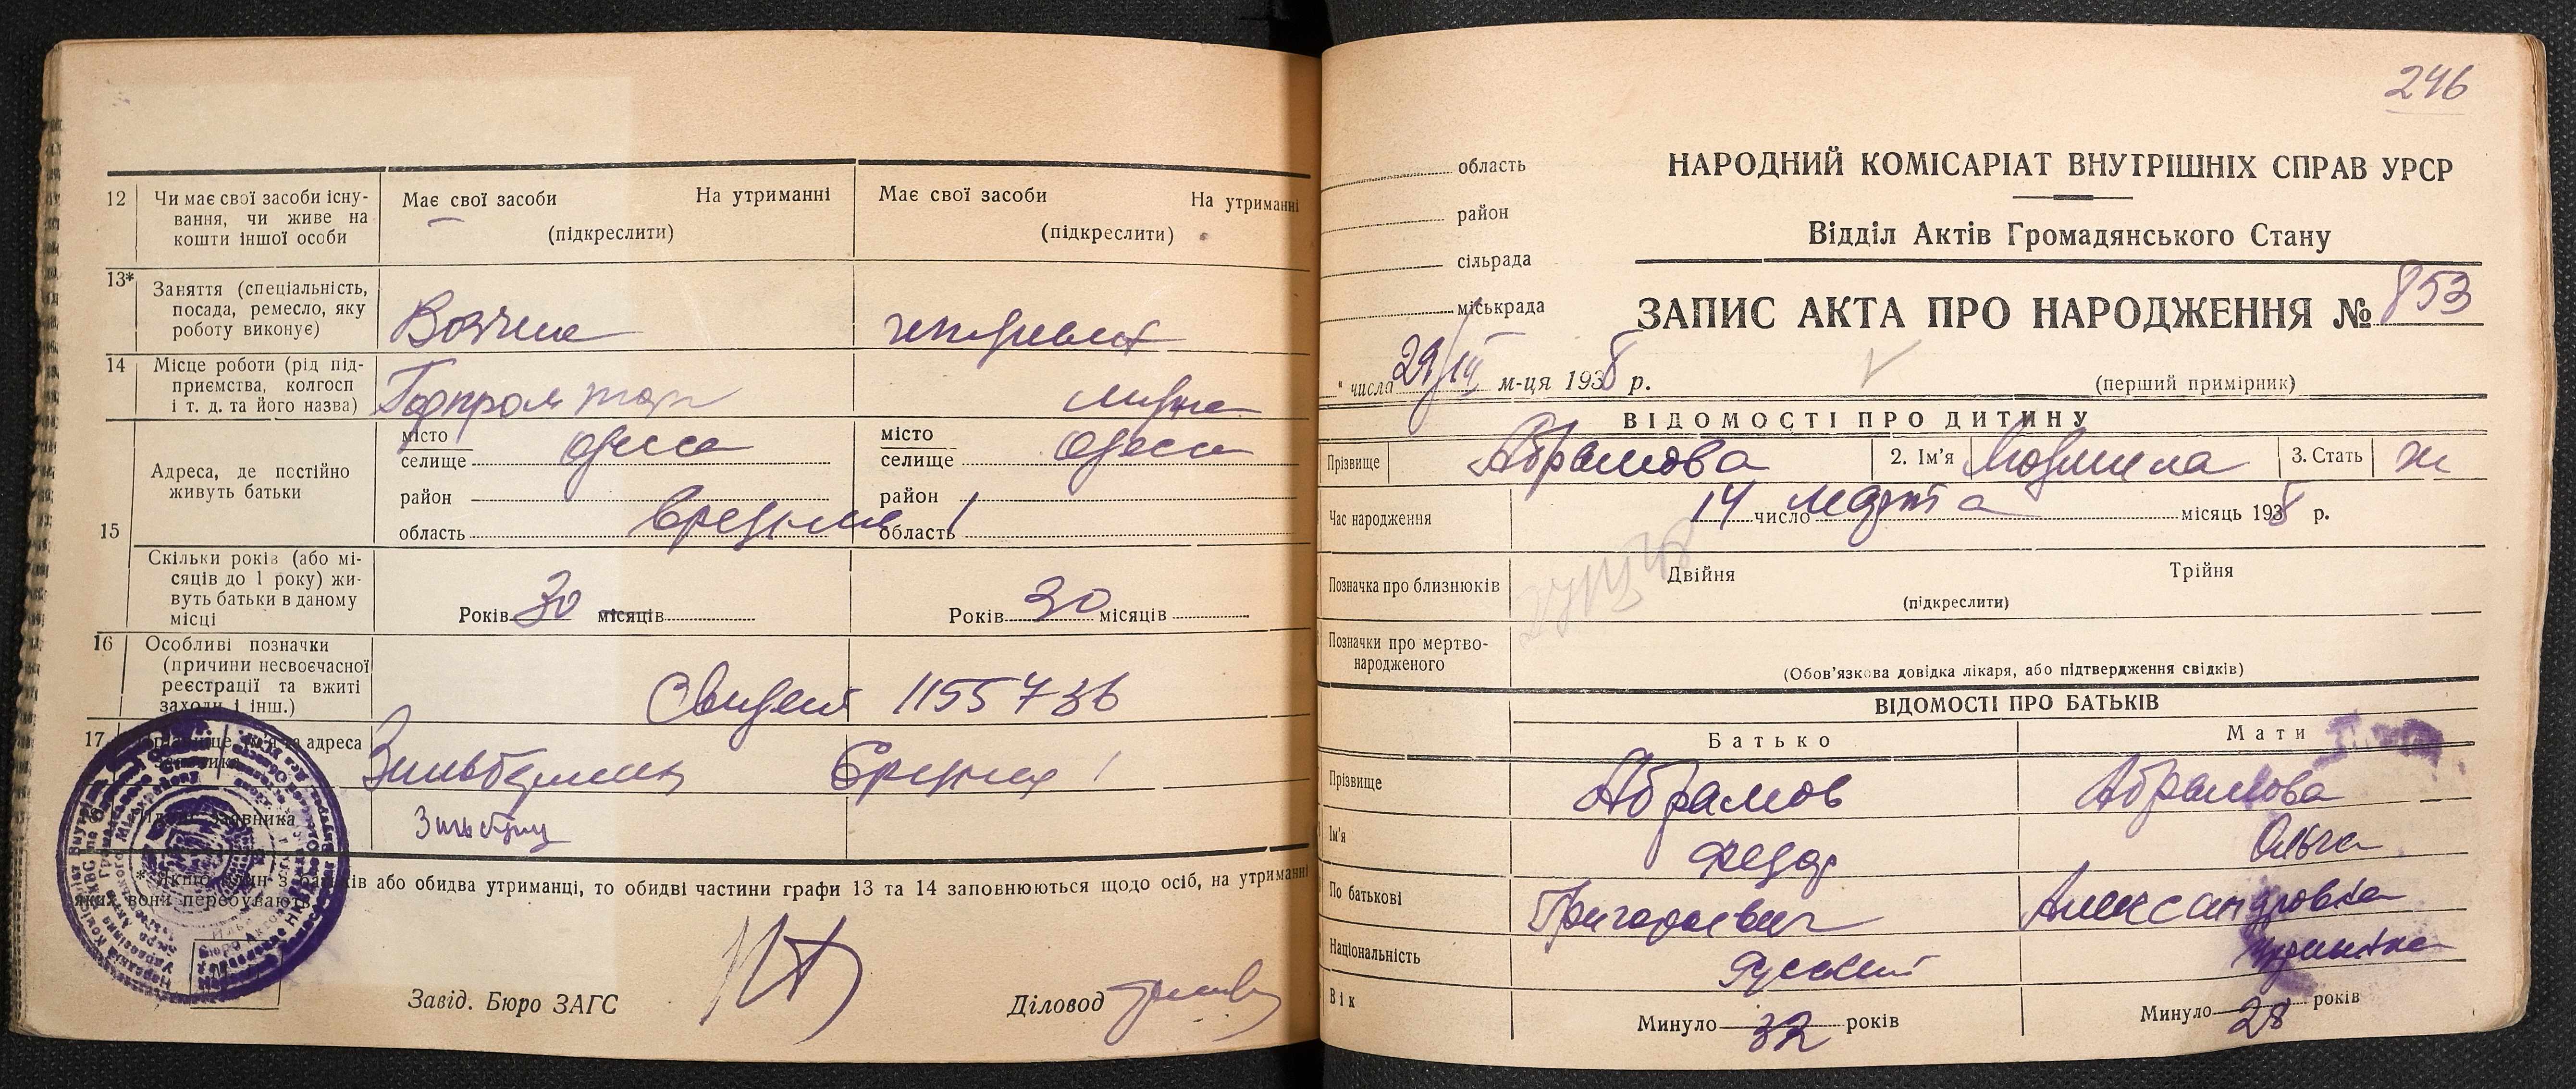 12 Чи має свої засоби існу-
вання, чи живе на
кошти іншої особи
Має свої засоби На утриманні
(підкреслити)
Має свої засоби На утриманні
(підкреслити)
13* Заняття (спеціальність,
посада, ремесло, яку
роботу виконує)
14 Місце роботи (рід під-
приємства, колгосп
і т. д. та його назва)
15 Адреса, де постійно
живуть батьки
місто
селище Одесса
район
область
місто
селище Одесса
район
область
Скільки років (або мі-
сяців до 1 року) жи-
вуть батьки в даному
місці
Років 30 місяців
Років 30 місяців
16 Особливі позначки
(причини несвоєчасної
реєстрації та вжиті
заходи і інш.)
1155736
17 та адреса
заявника
заявника
* Якщо один з батьків або обидва утриманці, то обидві частини графи 13 та 14 заповнюються щодо осіб, на утриманні
яких вони перебувають.
Завід. Бюро ЗАГС Діловод
246
область
район
сільрада
міськрада
НАРОДНИЙ КОМІСАРІАТ ВНУТРІШНІХ СПРАВ УРСР
Відділ Актів Громадянського Стану
ЗАПИС АКТА ПРО НАРОДЖЕННЯ № 853
" числа 29/III м-ця 1938 р.
(перший примірник)
ВІДОМОСТІ ПРО ДИТИНУ
Прізвище Абрамова 2. Ім'я Людмила 3. Стать ж
Час народження 14 число марта місяць 1938 р.
Позначка про близнюків Двійня Трійня
(підкреслити)
Позначки про мертво-
народженого
(Обов'язкова довідка лікаря, або підтвердження свідків)
ВІДОМОСТІ ПРО БАТЬКІВ
Батько Мати
Прізвище Абрамов Абрамова
Ім'я Федор Ольга
По батькові Григорьевич Александровна
Національність Русский Украинка
Вік Минуло 32 років Минуло 28 років